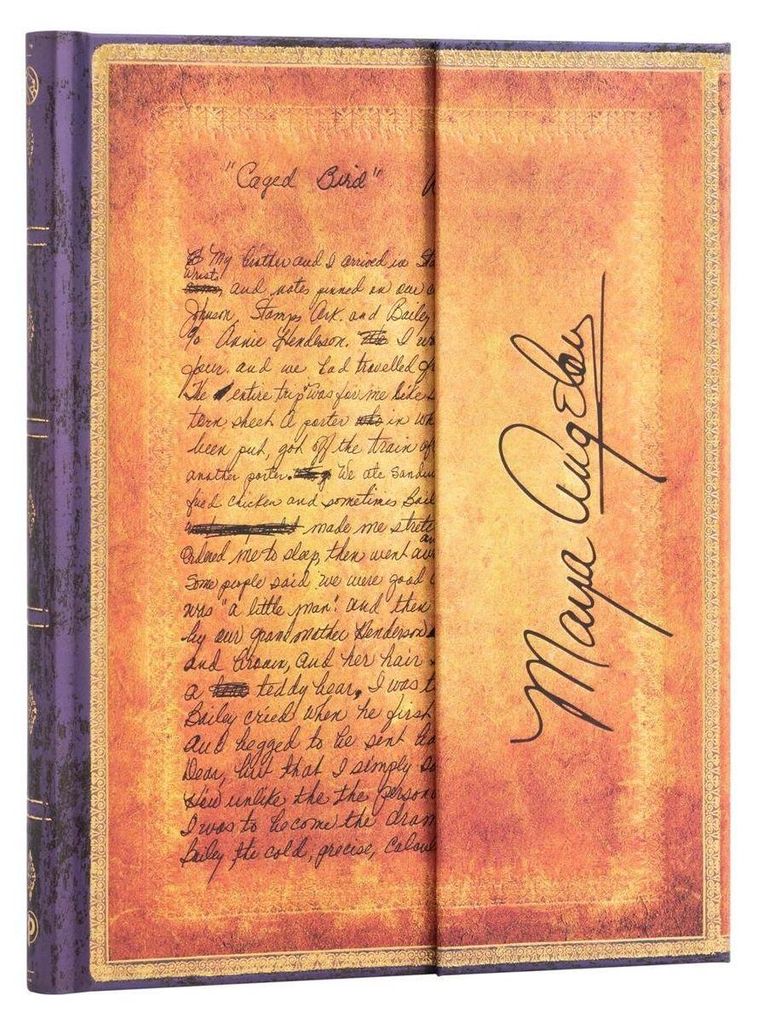 "Caged Bird"
My brother and I arrived in Sta
Wrists
and notes pinned on our
Johnson, Stamps Ark. and Bailey
% Annie Henderson. I w
four. and we had travelled f
The entire trip was for me like
torn sheet A porter in wh
been put, got off the train
another porter. We ate Sandw
fried chicken and sometimes Bail
made me stretc
Ordered me to sleep, then went aw
Some people said we were good
was "a little man". and then
by our grandmother Henderson
and brown, and her hair
a teddy bear. I was t
Bailey cried when he first
and begged to be sent ba
Dear, but that I simply
How unlike the the person
I was to become the dram
Bailey, the cold, precise, calcul
Maya Angelou